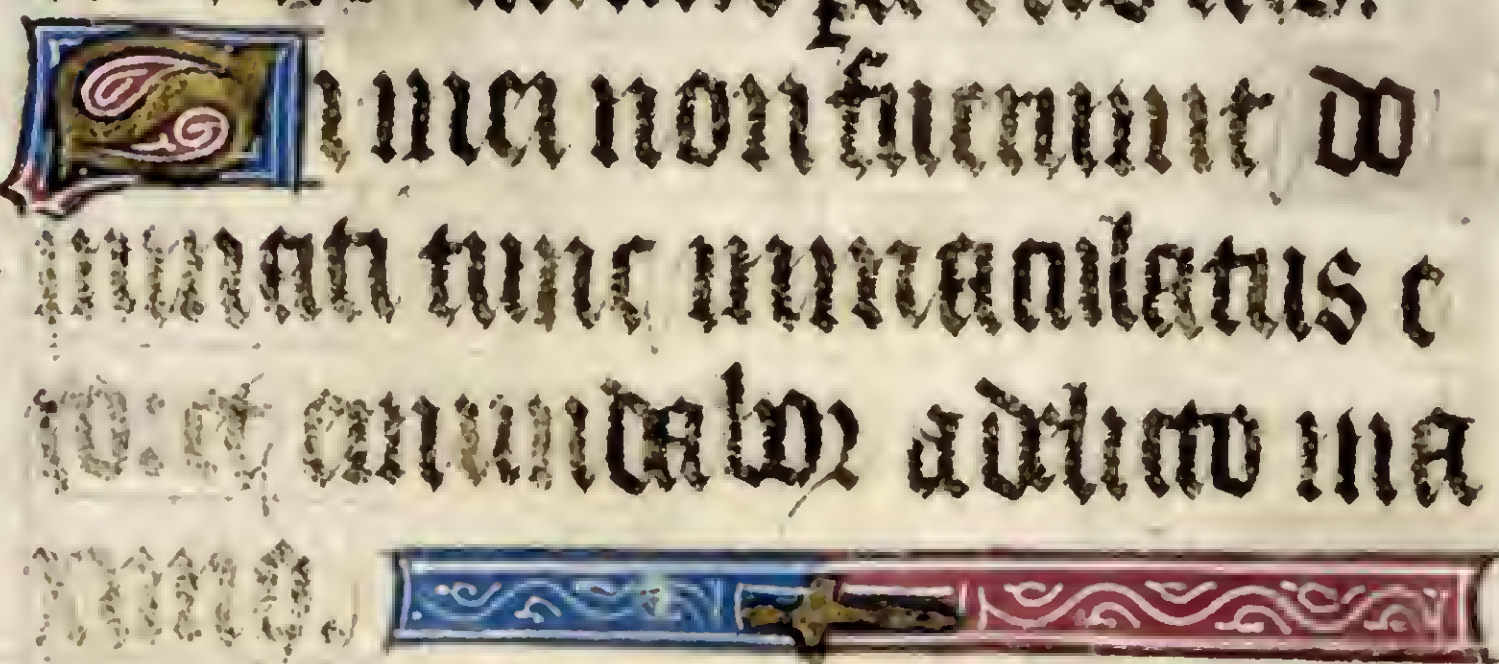 Si mei non fuerunt do
minati tunc immaculatus e
ro: et emundabor a delicto ma
ximo.